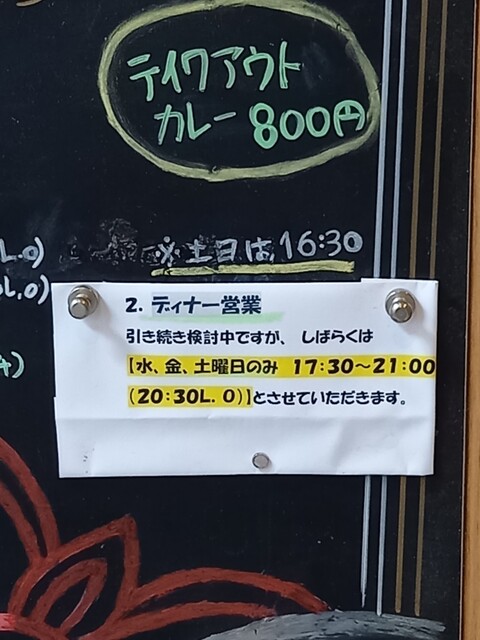 テイクアウト
カレー 800円
L.O)
※土日は、16:30
L.O)
2. ディナー営業
引き続き検討中ですが、しばらくは
【水、金、土曜日のみ 17:30～21:00
(20:30L.O)】とさせていただきます。